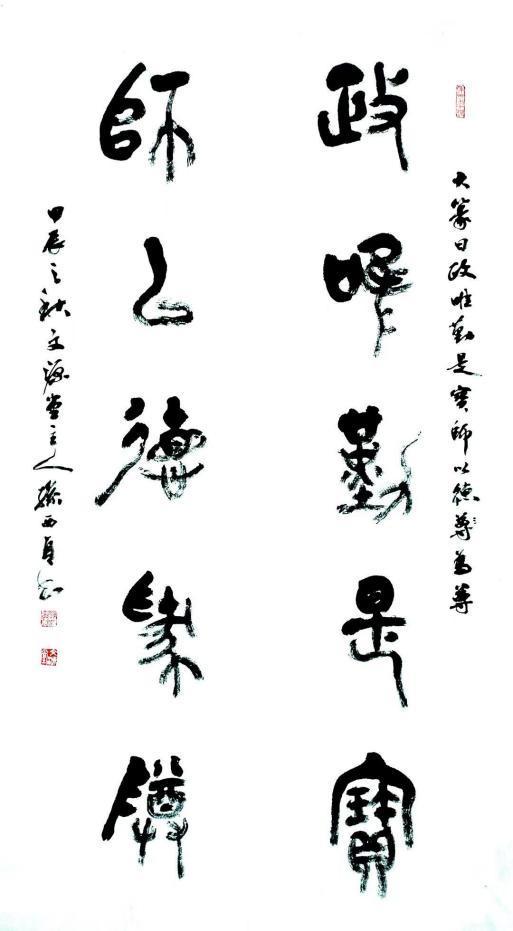 大篆曰政唯勤是寶師以德尊為尊
政唯勤是寶
師以德為尊
甲辰之秋文堂主人西